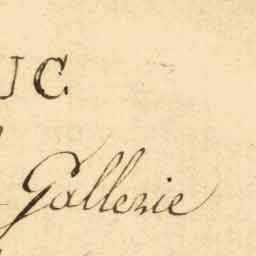 UC.
Gallerie